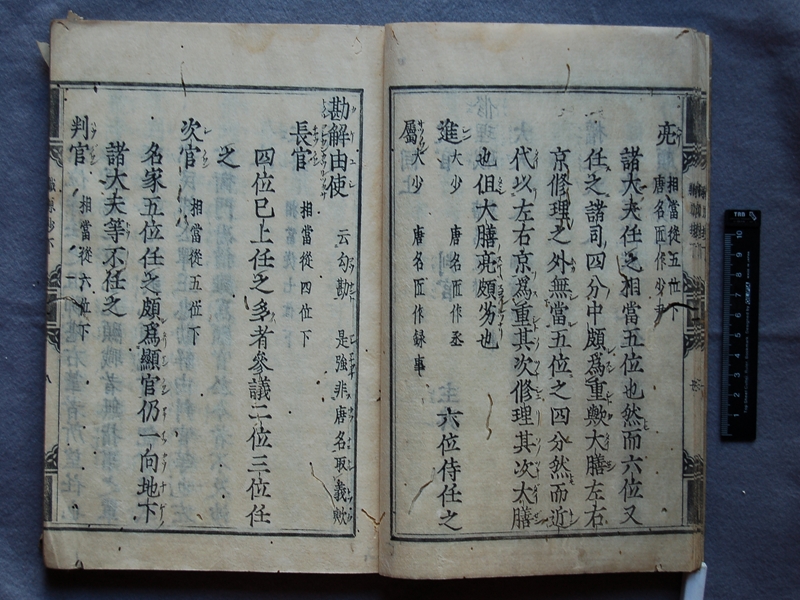 亮 相當從五位下
唐名匠作少尹
諸大夫任之相當五位也然而六位又
任之諸司四分中頗爲重歟大膳左右
京修理之外無當五位之四分然而近
代以左右京爲重其次修理其次大膳
也但大膳亮頗劣也
進 大少 唐名匠作丞 六位侍任之
屬 大少 唐名匠作録事
勘解由使 云勾勘 是強非唐名取義歟
長官 相當從四位下
四位已上任之多者參議二位三位任
之
次官 相當從五位下
名家五位任之頗爲顯官仍一向地下
諸大夫等不任之
判官 相當從六位下